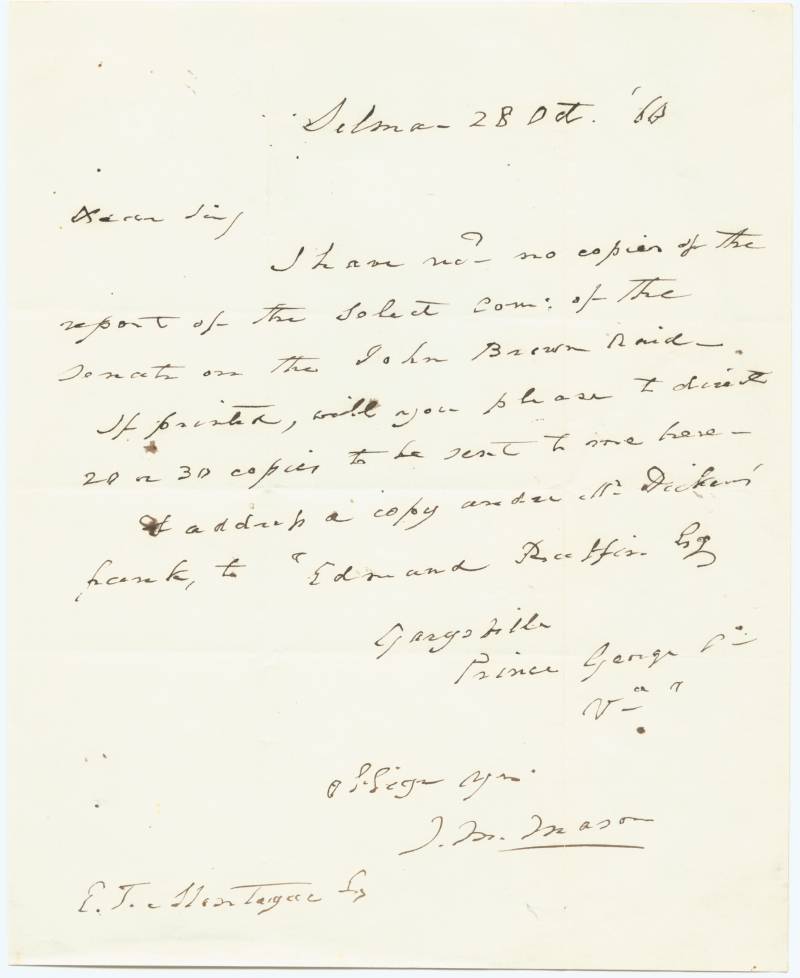 Selma - 28 Oct. '60
Dear Sir,
I have no copies of the
report of the Select Com: of the
Senate on the John Brown Raid -
If printed, will you please to direct
20 or 30 copies to be sent to me here -
& address a copy under Mr Dickins'
frank, to "Edmund Ruffin Esq
Garysville
Prince George Co
Va"
oblige yrs.
J. M. Mason
E. T. Montague Esq